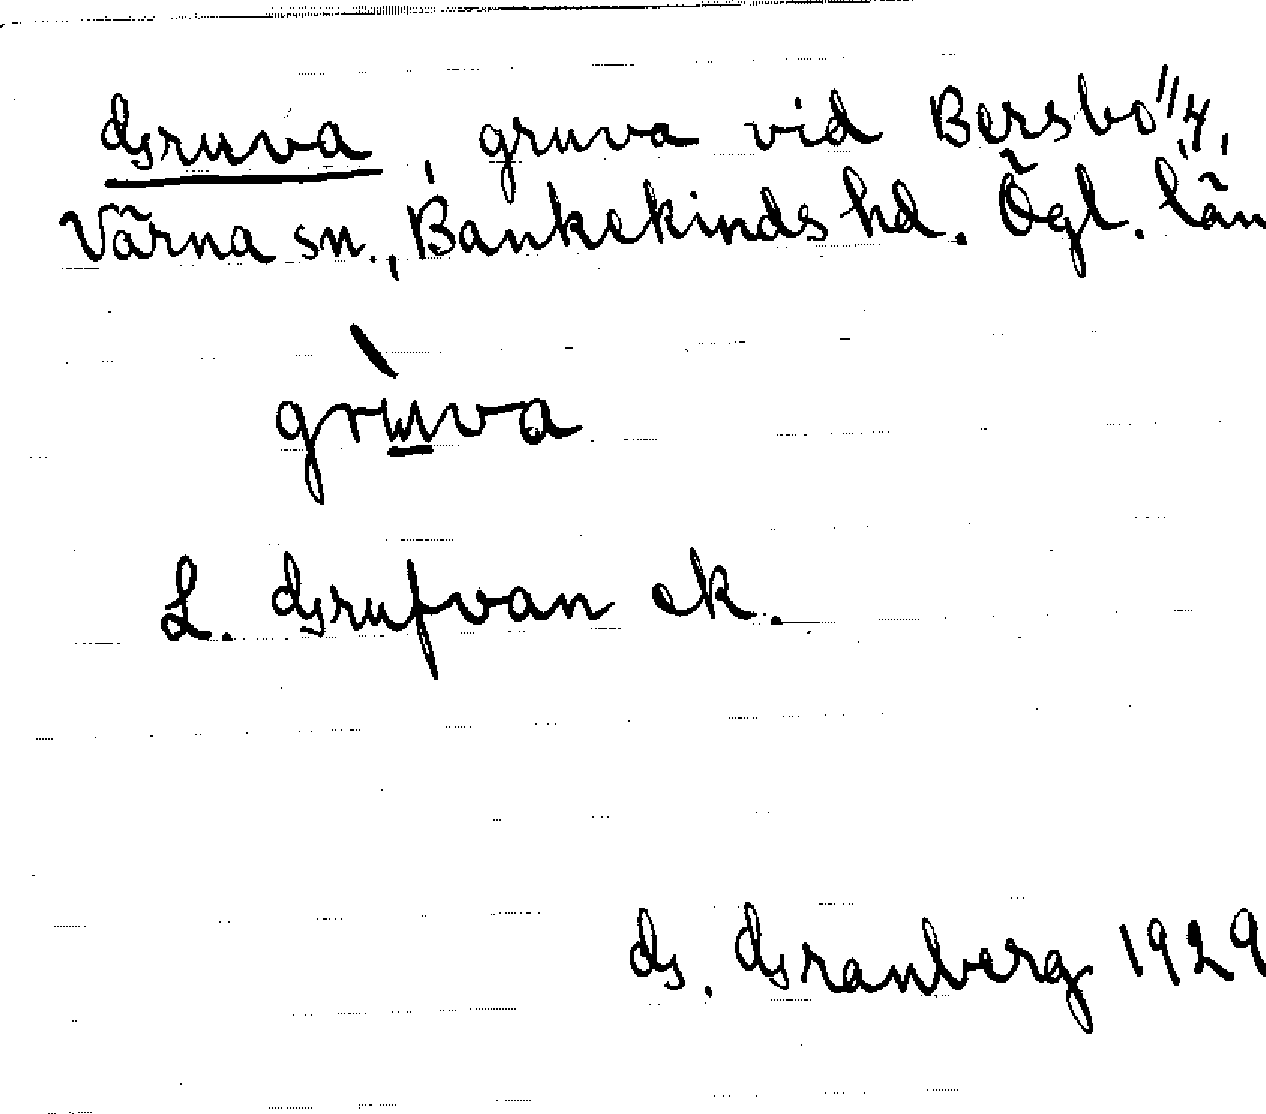 Gruva, gruva vid Bersbo 1/4,
Värna sn., Bankekinds hd. Ögl. län
gruva
L. Grufvan ek.
G. Granberg 1929